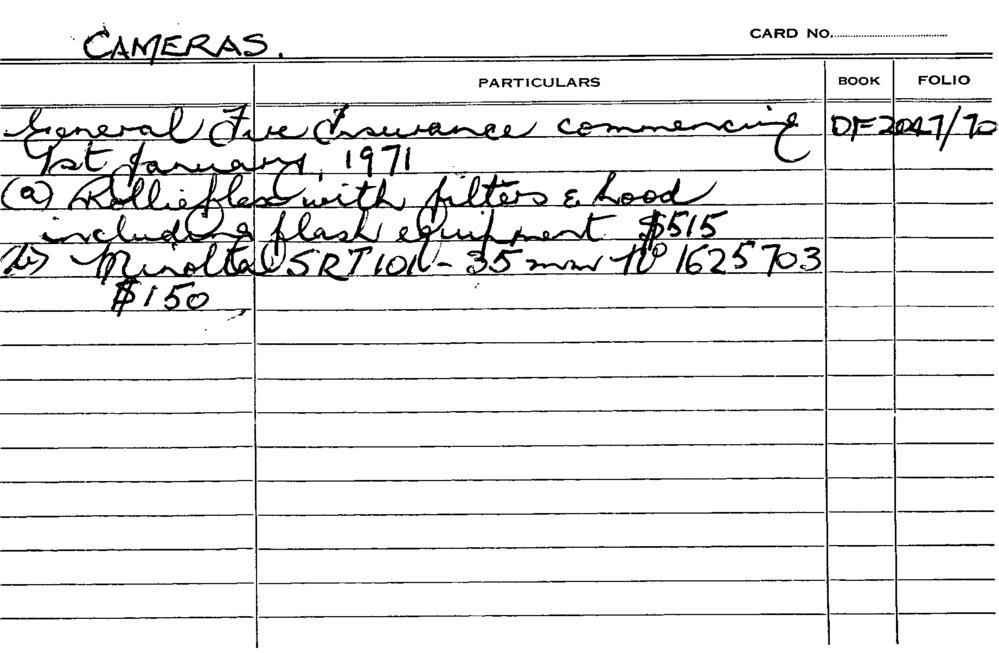 CAMERAS.
CARD NO.
PARTICULARS BOOK FOLIO
General Fire Insurance commencing DF2047/70
1st January, 1971
(a) Rollieflex with filters & hood
including flash equipment $515
(b) Minolta SRT101 - 35 mm No 1625703
$150